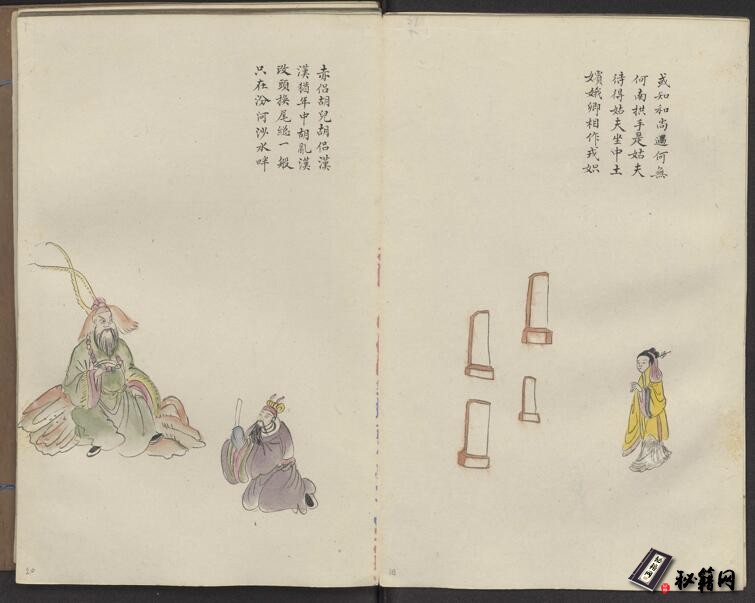 或知和尚遇何無
何南拱手是姑夫
待得姑夫坐中土
嬪娥卿相作戎奴
赤侶胡兒胡侶漢
漢猶年中胡亂漢
改頭換尾總一般
只在汾河沙水畔
20
18
秘籍网